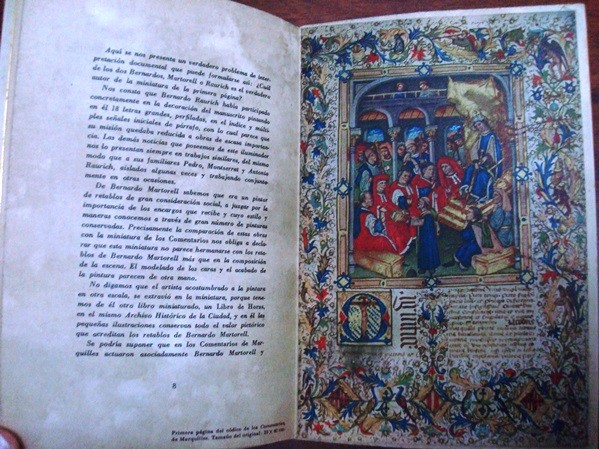 Aquí se nos presenta un verdadero problema de inter-
pretación documental que puede formularse así: ¿Cuál
de los dos Bernardos, Martorell o Raurich es el verdadero
autor de la miniatura de la primera página?
Nos consta que Bernardo Raurich había participado
concretamente en la decoración del manuscrito pintando
en él 18 letras grandes, perfiladas, en el índice y múlti-
ples señales iniciales de párrafo, con lo cual parece que
su misión quedaba reducida a obras de escasa importan-
cia. Las demás noticias que poseemos de este iluminador
nos lo presentan siempre en trabajos similares, del mismo
modo que a sus familiares Pedro, Montserrat y Antonio
Raurich, aislados algunas veces y trabajando conjunta-
mente en otras ocasiones.
De Bernardo Martorell sabemos que era un pintor
de retablos de gran consideración social, a juzgar por la
importancia de los encargos que recibe y cuyo estilo y
maneras conocemos a través de gran número de pinturas
conservadas. Precisamente la comparación de estas obras
con la miniatura de los Comentarios nos obliga a decla-
rar que esta miniatura no parece hermanarse con los reta-
blos de Bernardo Martorell más que en la composición
de la escena. El modelado de las caras y el acabado de
la pintura parecen de otra mano.
No digamos que el artista acostumbrado a la pintura
en otra escala, se extravió en la miniatura, porque tene-
mos de él otro libro miniaturado, un Libro de Horas,
en el mismo Archivo Histórico de la Ciudad, y en él las
pequeñas ilustraciones conservan todo el valor pictórico
que acreditan los retablos de Bernardo Martorell.
Se podría suponer que en los Comentarios de Mar-
quilles actuaron asociadamente Bernardo Martorell y
8
Primera página del códice de los Comentarios
de Marquilles. Tamaño del original: